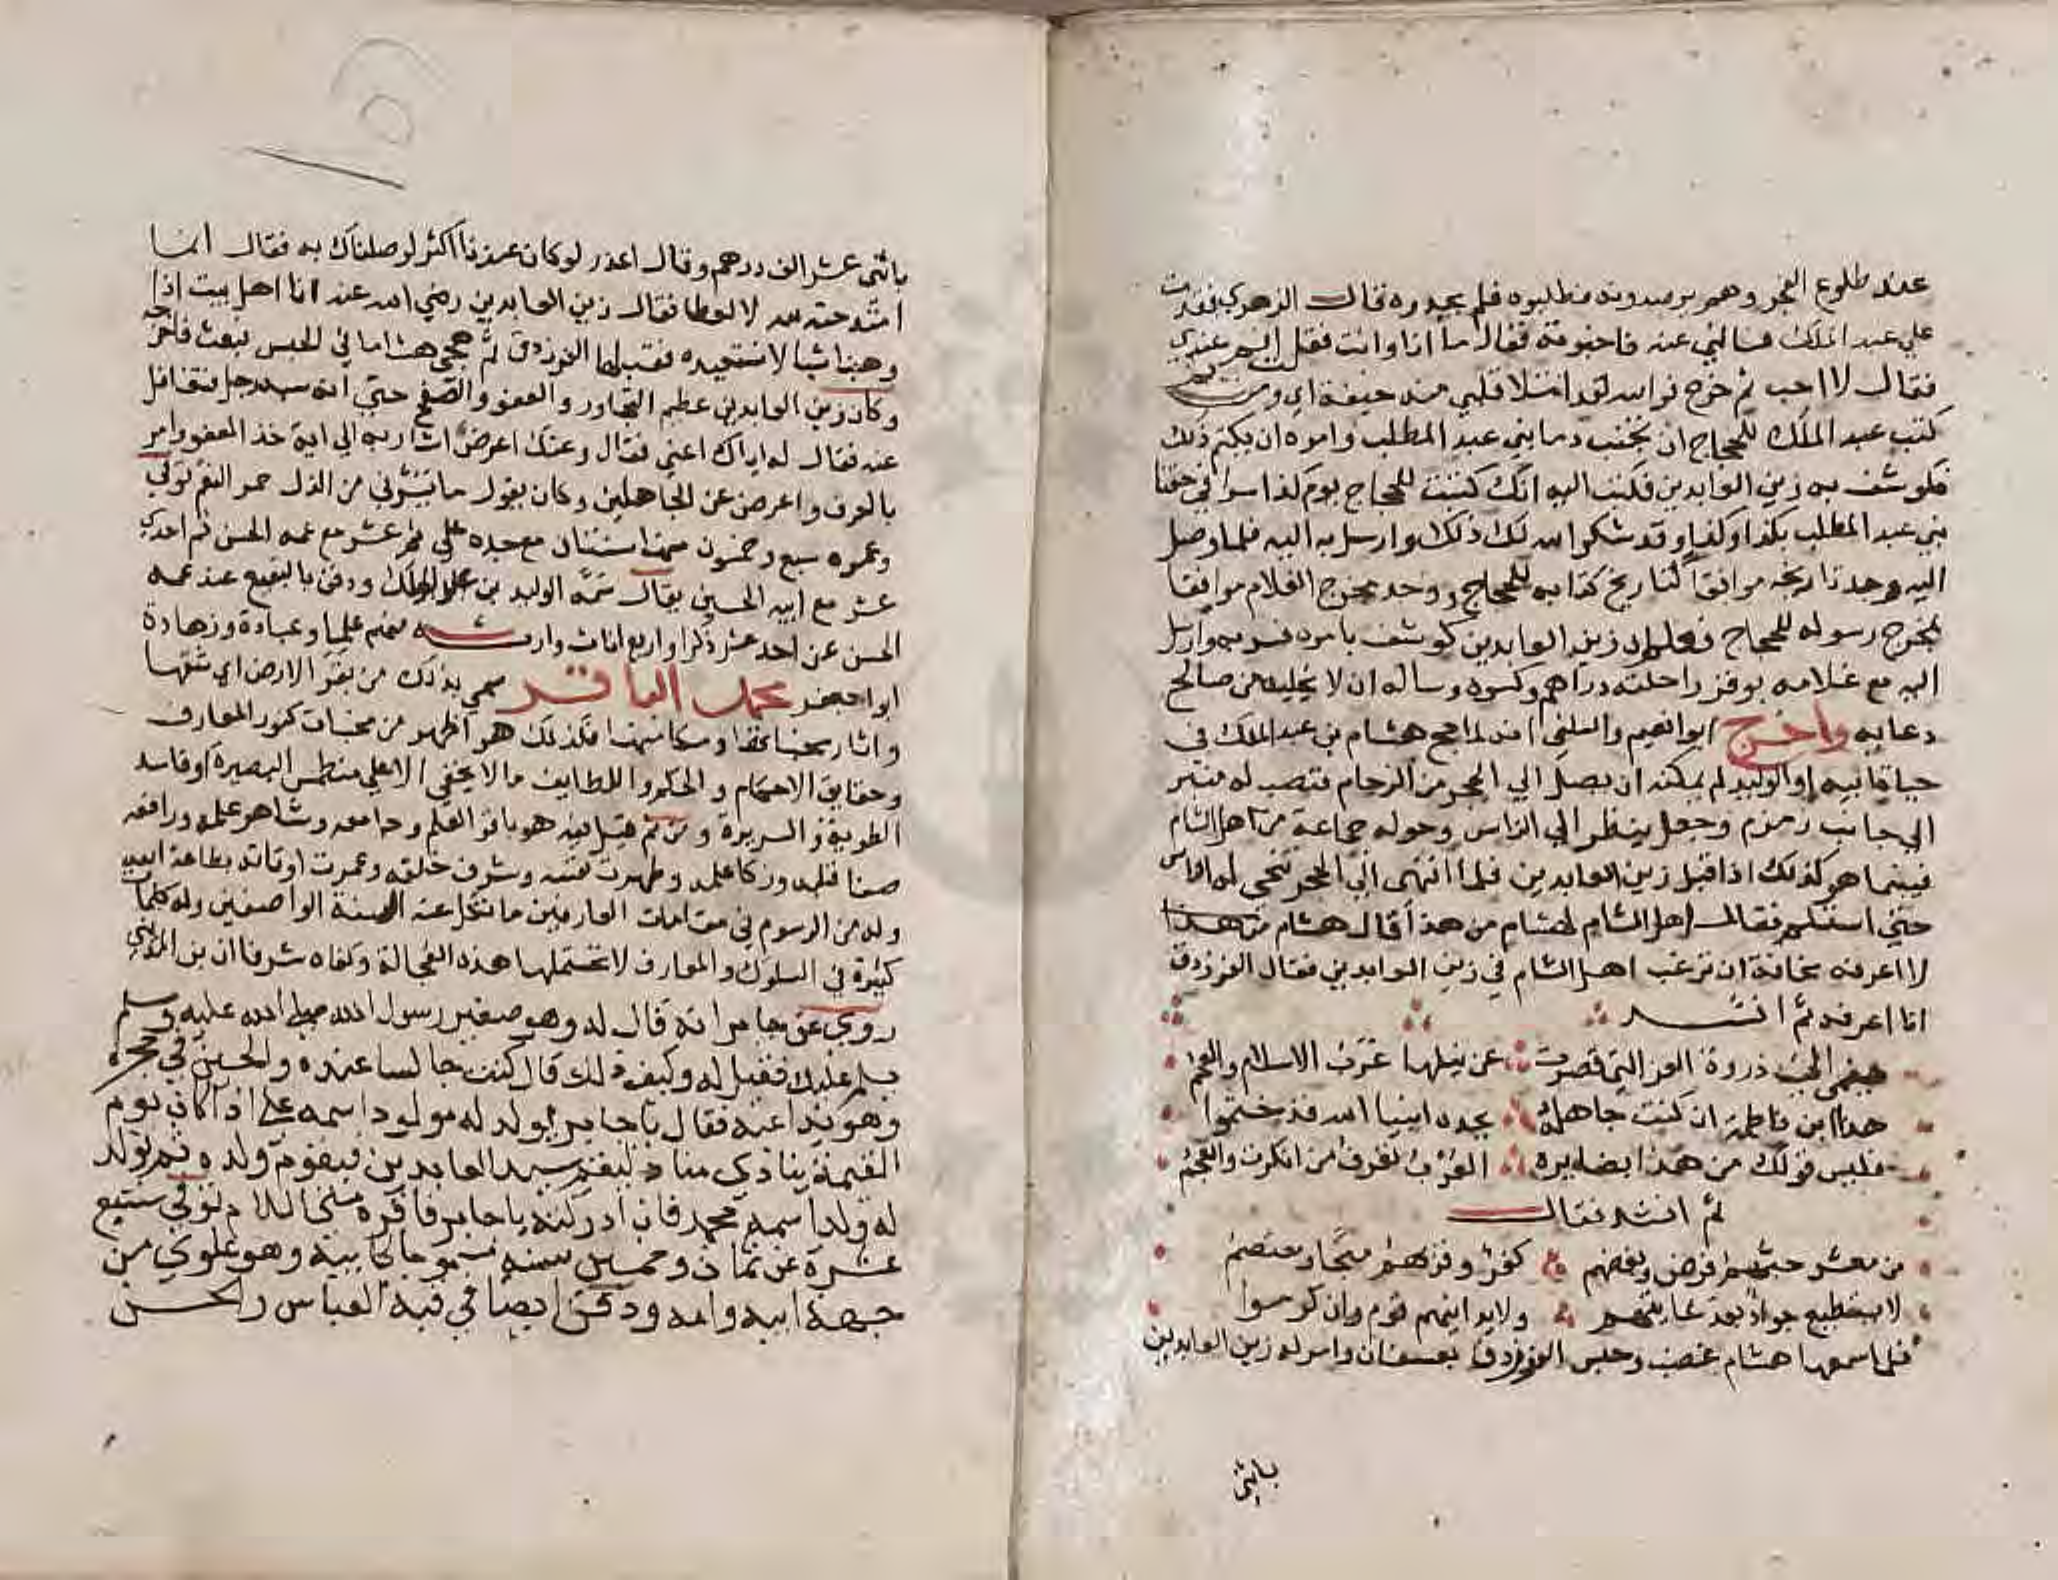 عند طلوع الفجر وهم يرصدونه فطلبوه فلم يجدوه قال الزهري فقدمت
علي عبد الملك فسالني عنه فاخبرته فقال ما انا وانت فقلت اقم عندي
فقال لا احب ثم خرج فو الله لقد امتلا قلبي منه خيفة اي ومن ثم
كتب عبد الملك للحجاج ان يجتنب دما بني عبد المطلب وامره ان يكتم ذلك
فكوشف به زين العابدين فكتب اليه انك كتبت للحجاج يوم كذا سرا في حقنا
بني عبد المطلب بكذا وكذا وقد شكر الله لك ذلك وارسل به اليه فلما وصل
اليه وجد تاريخه موافقا لتاريخ كتابه للحجاج ووجد مخرج الغلام موافقا
لمخرج رسوله للحجاج فعلم ان زين العابدين كوشف بامره فسر به وارسل
اليه مع غلامه بوقر راحلته دراهم وكسوة وساله ان لا يخليه من صالح
دعايه واخرج ابو نعيم والسلفي انه لما حج هشام بن عبد الملك في
حياة ابيه او الوليد لم يمكنه ان يصل الي الحجر من الزحام فنصب له منبر
الي جانب زمزم وجعل ينظر الي الناس وحوله جماعة من اهل الشام
فبينما هو كذلك اذ اقبل زين العابدين فلما انتهى الي الحجر تنحى له الناس
حتي استلم فقال اهل الشام لهشام من هذا قال هشام
لا اعرفه مخافة ان يرغب اهل الشام في زين العابدين فقال الفرزدق
انا اعرفه ثم انشد
ينمى الى ذروة العز التي قصرت عن نيلها عرب الاسلام والعجم
هذا ابن فاطمة ان كنت جاهله بجده انبيا الله قد ختموا
فليس قولك من هذا بضايره العرب تعرف من انكرت والعجم
ثم انشد فقال
من معشر حبهم فرض وبغضهم كفر وقربهم منجا ومعتصم
لا يستطيع جواد بعد غايتهم ولا يدانيهم قوم وان كرموا
فلما سمعها هشام غضب وحبس الفرزدق بعسفان وامر له زين العابدين
باثني
باثني عشر الف درهم وقال اعذر لو كان عندنا اكثر لوصلناك به فقال انما
امتدحته لله لا لعطا فقال زين العابدين رضي الله عنه انا اهل بيت اذا
وهبنا شيا لا نستعيده فقبلها الفرزدق ثم هجى هشاما في الحبس فبعث فاخرجه
وكان زين العابدين عظيم التجاوز والعفو والصفح حتى انه سبه رجل فتغافل
عنه فقال له اياك اعني فقال وعنك اعرض اشار به الي اية خذ العفو وامر
بالعرف واعرض عن الجاهلين وكان يقول ما يسرني من الذل حمر النعم توفي
وعمره سبع وخمسون منها سنتان مع جده علي ثم عشر مع عمه الحسن ثم احدي
عشر مع ابيه الحسين يقال سمه الوليد بن عبد الملك ودفن بالبقيع عند عمه
الحسن عن احد عشر ذكرا واربع اناث وارثه منهم علما وعبادة وزهادة
ابو جعفر محمد الباقر سمي بذلك من بقر الارض اي شقها
واثار مخبياتها ومكامنها فكذلك هو اظهر من مخبات كنوز المعارف
وحقايق الاحكام والحكم واللطايف ما لا يخفي الا علي منطمس البصيرة او فاسد
الطوية والسريرة ومن ثم قيل فيه هو باقر العلم وجامعه وشاهر علمه ورافعه
صفا قلبه وزكا علمه وطهرت نفسه وشرف خلقه وعمرت اوقاته بطاعة الله
وله من الرسوم في مقامات العارفين ما تكل عنه السنة الواصفين وله كلمات
كثيرة في السلوك والمعارف لا تحتملها هذه العجالة وكفاه شرفا ان بن المديني
روي عن جابر انه قال له وهو صغير رسول الله صلي الله عليه وسلم
يسلم عليك فقيل له وكيف ذلك قال كنت جالسا عنده والحسين في حجره
وهو يداعبه فقال يا جابر يولد له مولود اسمه علي اذا كان يوم
القيمة ينادي مناد ليقم سيد العابدين فيقوم ولده ثم يولد
له ولد اسمه محمد فان ادركته يا جابر فاقره مني السلام توفي سبع
عشرة عن ثمان وخمسين سنه مسموما كابيه وهو علوي من
جهة ابيه وامه ودفن ايضا في قبة العباس والحسن